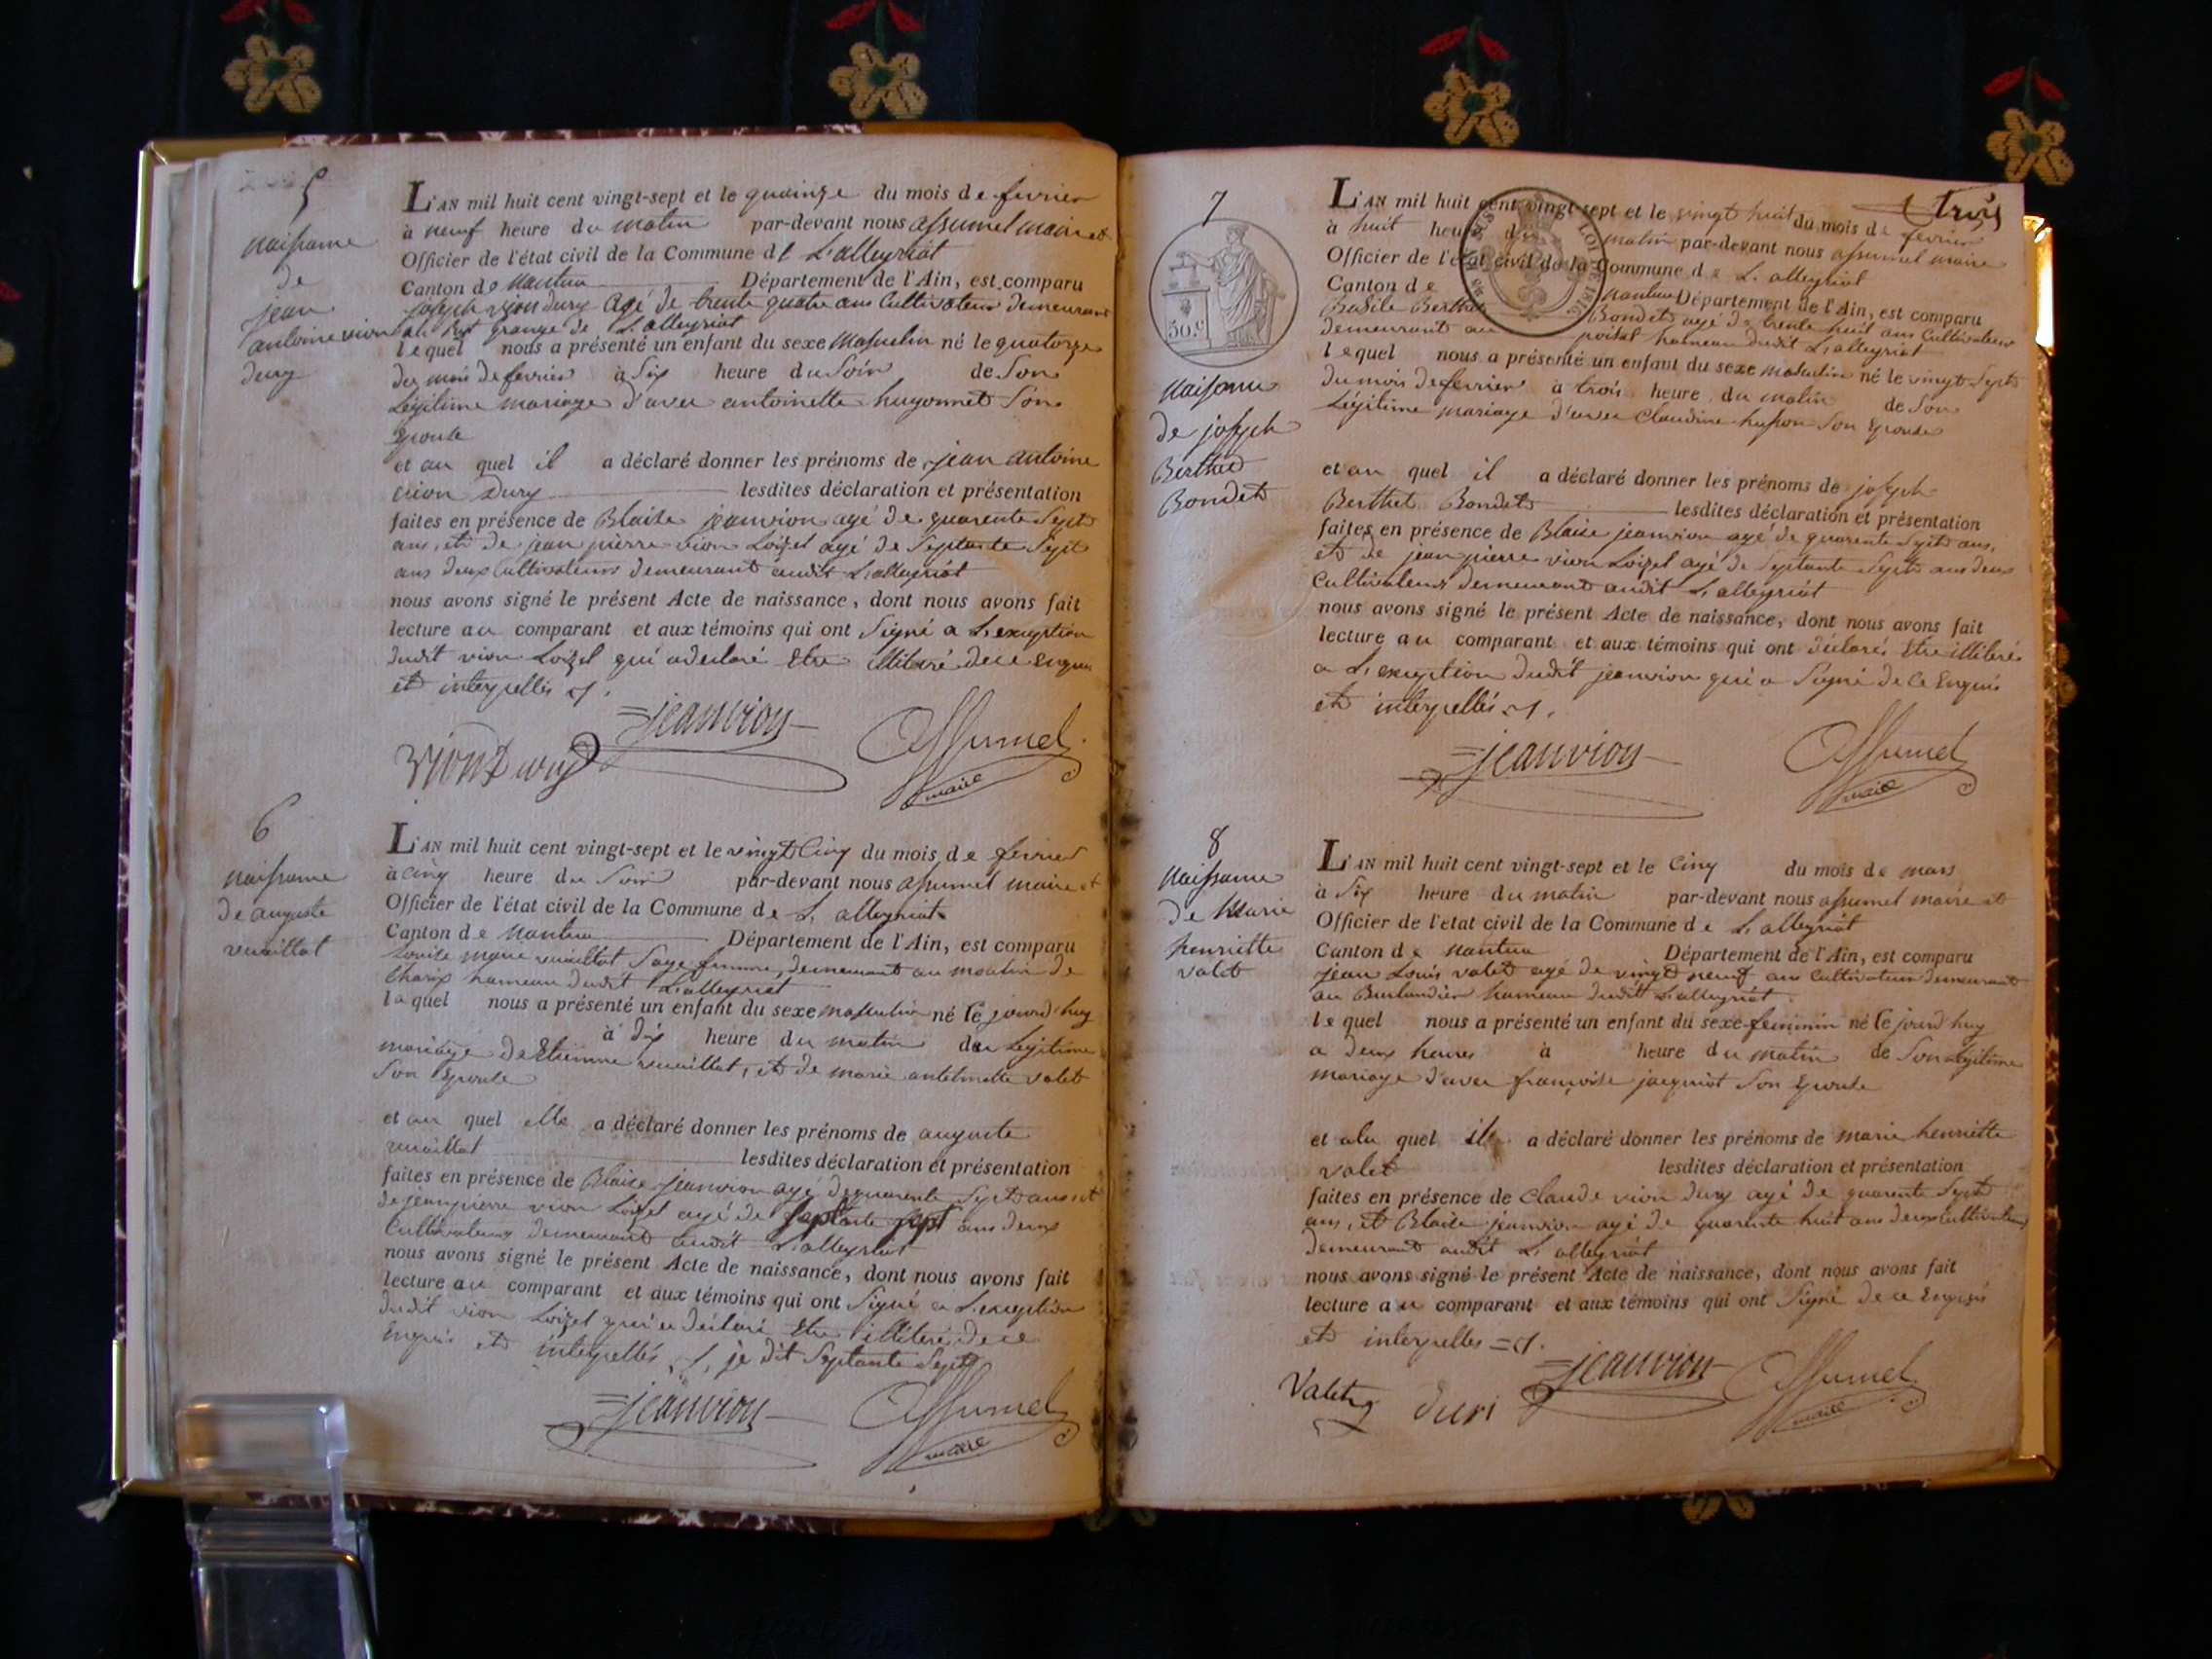 5
naissance
de
jean
antoine vion
dury
L'AN mil huit cent vingt-sept et le quainze du mois de fevrier
à neuf heure du matin par-devant nous assumel maire et
Officier de l'état civil de la Commune de L'alleyriat
Canton de Nantua Département de l'Ain, est comparu
joseph vion dury agé de trente quatre ans Cultivateur demeurant
au grange de L'alleyriat
lequel nous a présenté un enfant du sexe masculin né le quatorze
du mois de fevrier à Six heure du Soir de Son
Légitime mariage d'avec antoinette hugonnet Son
Epouse
et au quel il a déclaré donner les prénoms de jean antoine
vion Dury lesdites déclaration et présentation
faites en présence de Blaise jeanvion agé de quarente Sept
ans, et de jean pierre vion Loizel agé de Septante Sept
ans deux Cultivateurs demeurant audit L'alleyriat
nous avons signé le présent Acte de naissance, dont nous avons fait
lecture au comparant et aux témoins qui ont Signé a L'exception
dudit vion Loizel qui a declaré Etre illiteré de ce Enquis
et interpellés
jeanvion
Viondury
Assumel
maire
6
naissance
de auguste
vuaillat
L'AN mil huit cent vingt-sept et le vingt Cinq du mois de fevrier
à Cinq heure du Soir par-devant nous assumel maire et
Officier de l'état civil de la Commune de L'alleyriat
Canton de Nantua Département de l'Ain, est comparu
Louise marie vuaillat Sage femme, demeurant au moulin de
Charix hameau dudit L'alleyriat
laquel nous a présenté un enfant du sexe masculin né Ce jourd'huy
à dix heure du matin du Legitime
mariage de Etienne vuaillat, et de marie antelmette valet
Son Epouse
et au quel elle a déclaré donner les prénoms de auguste
vuaillat lesdites déclaration et présentation
faites en présence de Blaise jeanvion agé de quarente Sept ans et
de jean pierre vion Loizel agé de Septante Sept ans deux
Cultivateurs demeurant audit L'alleyriat
nous avons signé le présent Acte de naissance, dont nous avons fait
lecture au comparant et aux témoins qui ont Signé a L'exception
dudit vion Loizel qui a déclaré Etre illiteré de ce
Enquis et interpellés je dit Septante Sept
jeanvion
Assumel
maire
trois
7
50 c
naissance
de joseph
Berthet
Bondet
L'AN mil huit cent vingt-sept et le vingt huit du mois de fevrier
à huit heure du matin par-devant nous assumel maire
Officier de l'état civil de la Commune de L'alleyriat
Canton de Nantua Département de l'Ain, est comparu
Basile Berthet Bondet agé de trente huit ans Cultivateur
demeurant au poizat hameau dudit L'alleyriat
lequel nous a présenté un enfant du sexe masculin né le vingt Sept
du mois de fevrier à trois heure du matin de Son
Légitime mariage d'avec Claudine husson Son Epouse
et au quel il a déclaré donner les prénoms de joseph
Berthet Bondet lesdites déclaration et présentation
faites en présence de Blaise jeanvion agé de quarente Sept ans,
et de jean pierre vion Loizel agé de Septante Sept ans deux
Cultivateurs demeurant audit L'alleyriat
nous avons signé le présent Acte de naissance, dont nous avons fait
lecture au comparant et aux témoins qui ont déclarés Etre illiterés
a L'exception dudit jeanvion qui a Signé de Ce Enquis
et interpellés
jeanvion
Assumel
maire
8
naissance
de Marie
henriette
valet
L'AN mil huit cent vingt-sept et le Cinq du mois de mars
à Six heure du matin par-devant nous assumel maire et
Officier de l'etat civil de la Commune de L'alleyriat
Canton de Nantua Département de l'Ain, est comparu
jean Louis valet agé de vingt neuf ans Cultivateur demeurant
au Burlandier hameau dudit L'alleyriat
lequel nous a présenté un enfant du sexe feminin né Ce jourd'huy
a deux heures à heure du matin de Son Légitime
mariage d'avec françoise jacquiot Son Epouse
et alu quel il a déclaré donner les prénoms de marie henriette
valet lesdites déclaration et présentation
faites en présence de Claude vion Dury agé de quarente Sept
ans, et Blaise jeanvion agé de quarente huit ans deux Cultivateurs
demeurant audit L'alleyriat
nous avons signé le présent Acte de naissance, dont nous avons fait
lecture au comparant et aux témoins qui ont Signé de ce Enquis
et interpellés
Valet
duri
jeanvion
Assumel
maire